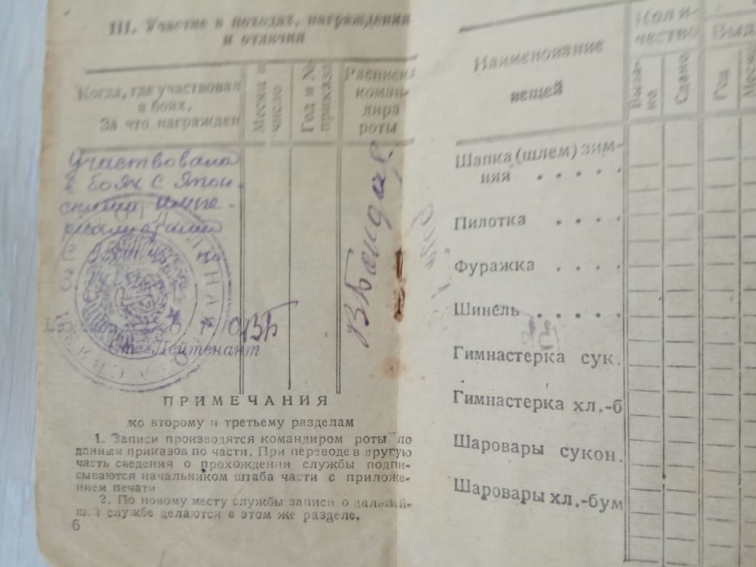 III. Участие в походах, награждения
и отличия
Когда, где участвовал
в боях.
За что награжден
Месяц и
число
Год и №
приказа
Расписка
коман-
дира
роты
участвовала
в боях с Япон-
скими импе-
риалистами
с
Лейтенант
ПРИМЕЧАНИЯ
ко второму и третьему разделам
1. Записи производятся командиром роты по
данным приказов по части. При переводе в другую
часть сведения о прохождении службы подпи-
сываются начальником штаба части с приложе-
нием печати
2. По новому месту службы записи о дальней-
шей службе делаются в этом же разделе.
6
Наименование
вещей
Коли-
чество
Выда-
но
Сдано
Год
Шапка (шлем) зим-
няя . . . . .
Пилотка . . . .
Фуражка . . . .
Шинель . . . . .
Гимнастерка сук.
Гимнастерка хл.-б
Шаровары сукон.
Шаровары хл.-бум